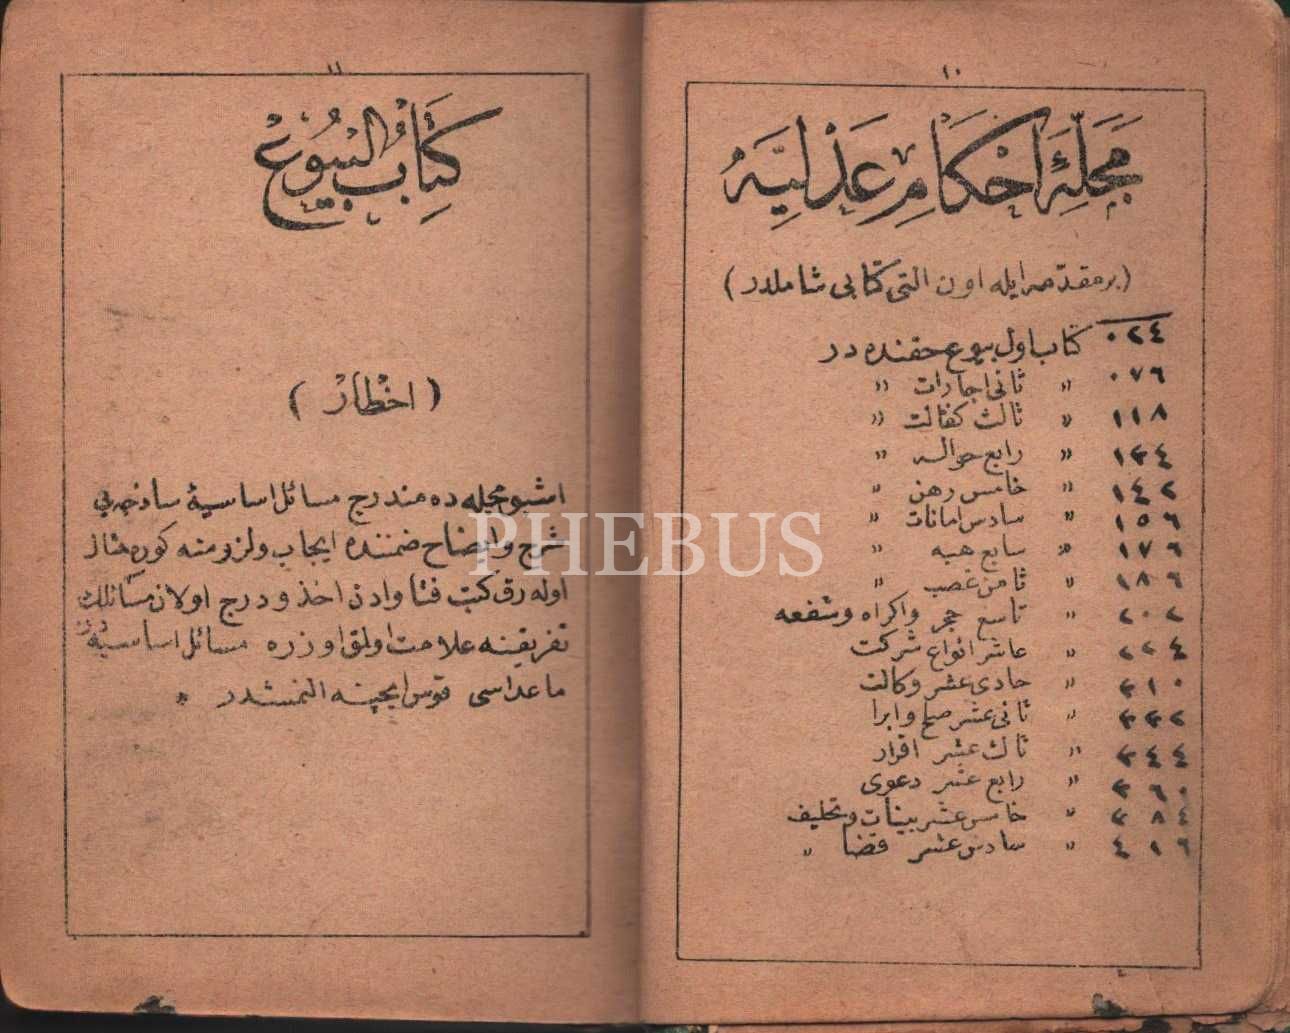 ١٠
مجلّۀ احكام عدليّه
(بر مقدّمه ايله اون التى كتابى شاملدر)
٠٢٤ كتاب اول بيوع حقنده در
٠٧٦ " ثانى اجارات "
١١٨ " ثالث كفالت "
١٣٤ " رابع حواله "
١٤٢ " خامس رهن "
١٥٦ " سادس امانات "
١٧٦ " سابع هبه "
١٨٦ " ثامن غصب "
٢٠٢ " تاسع حجر واكراه وشفعه
٢٢٤ " عاشر انواع شركت
٣١٠ " حادى عشر وكالت
٣٣٢ " ثانى عشر صلح وابرا
٣٤٤ " ثالث عشر اقرار
٣٦٠ " رابع عشر دعوى
٣٨٤ " خامس عشر بينات وتحليف
٤١٦ " سادس عشر قضا "
١١
كتاب البيوع
(اخطار)
اشبو مجله ده مندرج مسائل اساسيۀ ساده‌
شرح وايضاح ضمننده ايجاب ولزومنه كوره
اوله رق كتب فتاوادن اخذ ودرج اولان مسائلك
تفريقنه علامت اولمق اوزره مسائل اساسيه دن
ماعداسى قوس ايچينه النمشدر *
PHEBUS